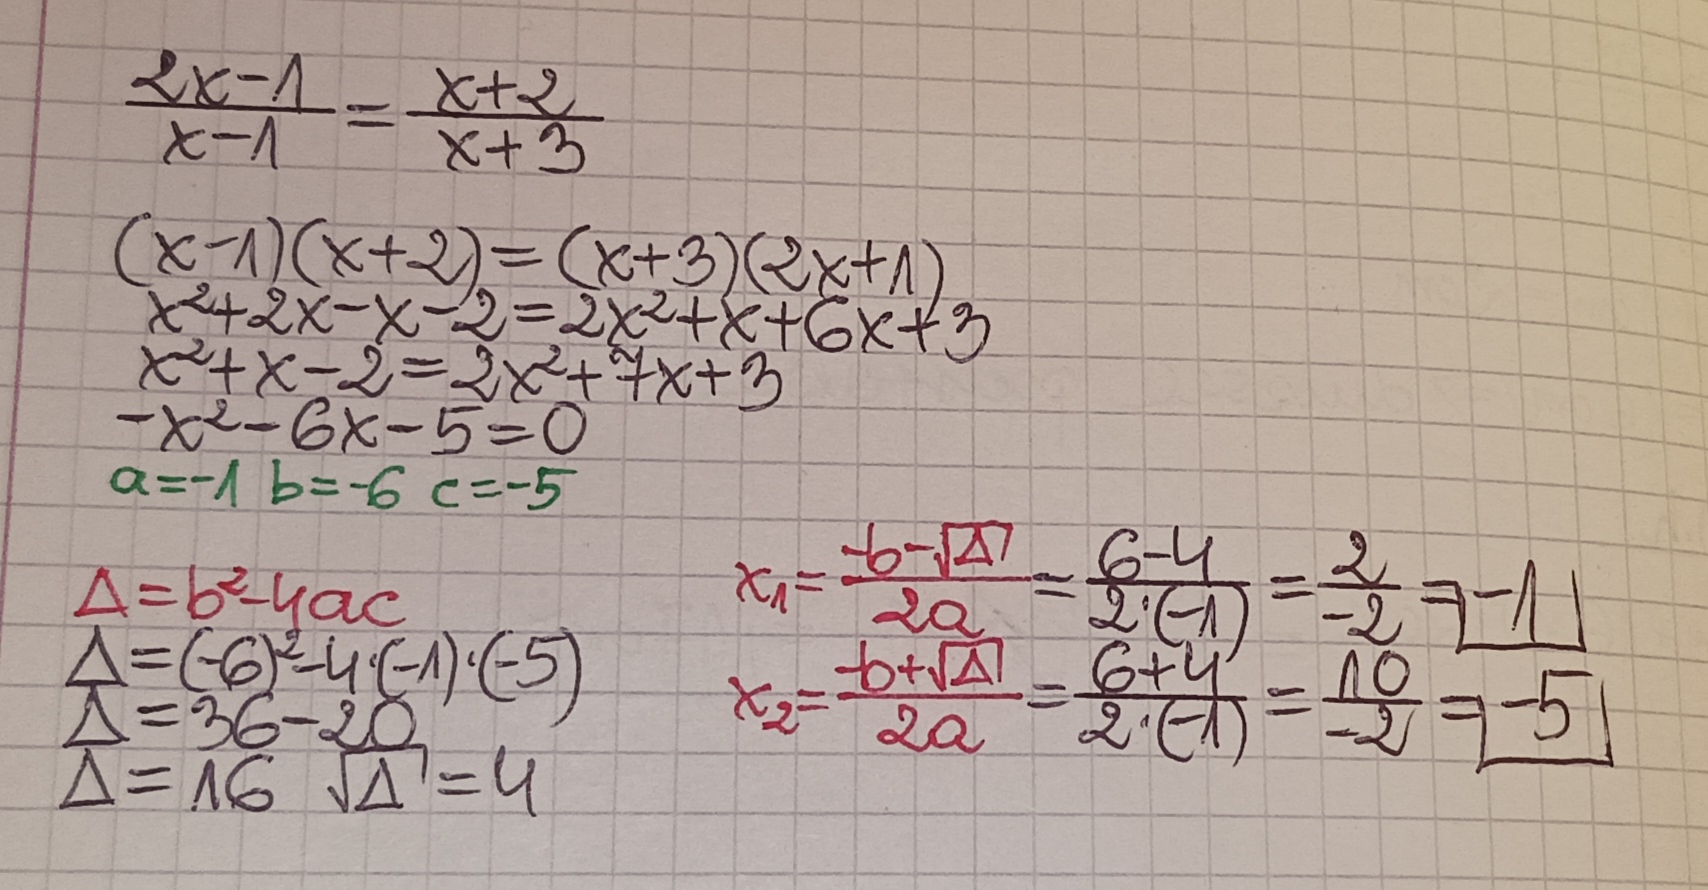 2x-1/x-1 = x+2/x+3
(x-1)(x+2)=(x+3)(2x+1)
x²+2x-x-2=2x²+x+6x+3
x²+x-2=2x²+7x+3
-x²-6x-5=0
a=-1 b=-6 c=-5
Δ=b²-4ac
Δ=(-6)²-4·(-1)·(-5)
Δ=36-20
Δ=16 √Δ=4
x₁= -b-√Δ/2a = 6-4/2·(-1) = 2/-2 = -1
x₂= -b+√Δ/2a = 6+4/2·(-1) = 10/-2 = -5